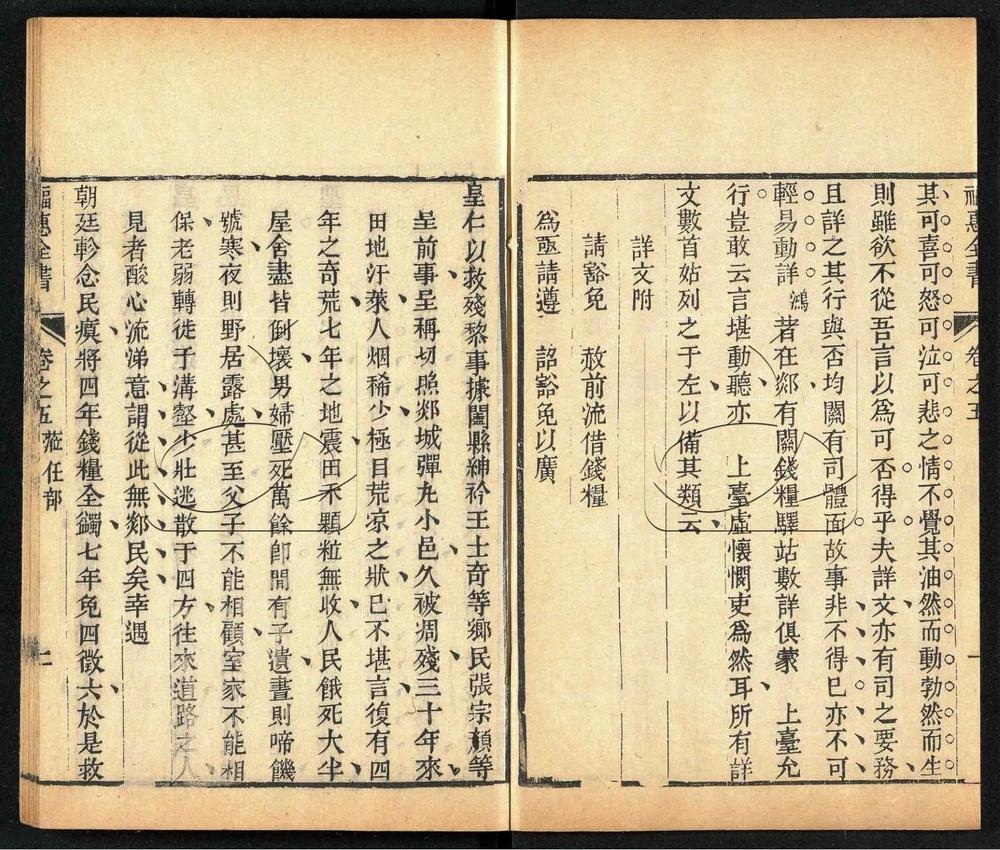 福惠全書 卷之五
其可喜可怒可泣可悲之情不覺其油然而動勃然而生
則雖欲不從吾言以為可否得乎夫詳文亦有司之要務
且詳之其行與否均關有司體面故事非不得已亦不可
輕易動詳鴻著在郯有關錢糧驛站數詳俱蒙 上臺允
行豈敢云言堪動聽亦 上臺虛懷憫吏為然耳所有詳
文數首姑列之于左以備其類云
詳文附
請豁免 赦前流借錢糧
為亟請遵 詔豁免以廣
皇仁以救殘黎事據闔縣紳衿王士奇等鄉民張宗顏等
呈前事呈稱切照郯城彈丸小邑久被凋殘三十年來
田地汙萊人烟稀少極目荒凉之狀已不堪言復有四
年之奇荒七年之地震田禾顆粒無收人民餓死大半
屋舍盡皆倒壞男婦壓死萬餘卽間有孑遺晝則啼饑
號寒夜則野居露處甚至父子不能相顧室家不能相
保老弱轉徙于溝壑少壯逃散于四方往來道路之人
見者酸心流涕意謂從此無郯民矣幸遇
朝廷軫念民瘼將四年錢糧全蠲七年免四徵六於是救
福惠全書 卷之五 蒞任部 七